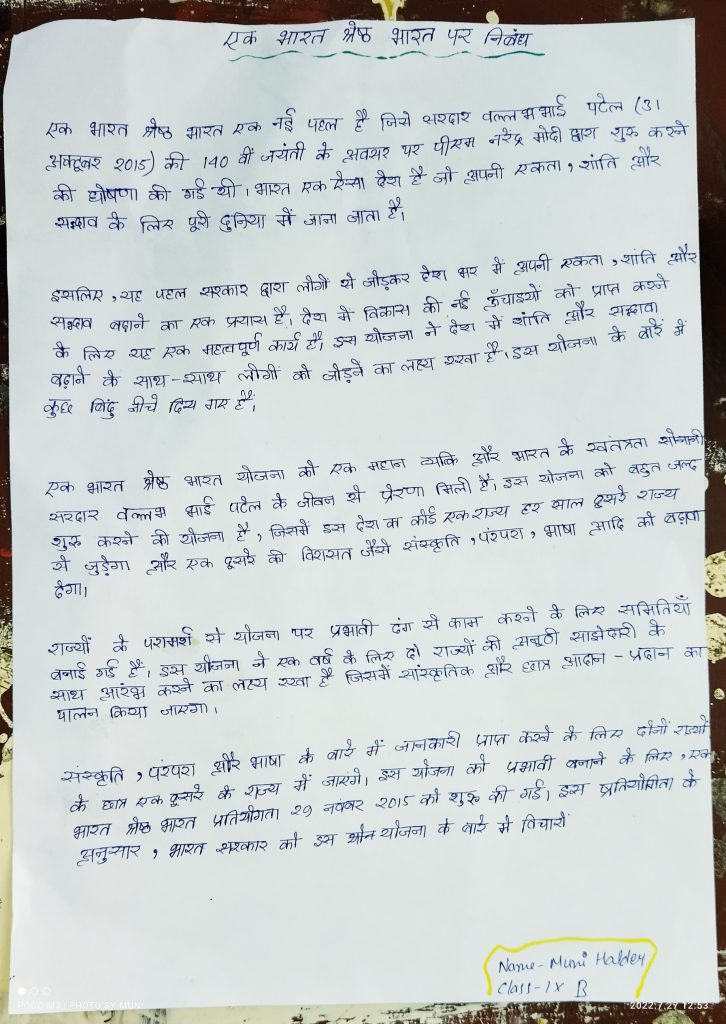 एक भारत श्रेष्ठ भारत पर निबंध
एक भारत श्रेष्ठ भारत एक नई पहल है जिसे सरदार वल्लभभाई पटेल (31
अक्टूबर 2015) की 140 वीं जयंती के अवसर पर पीएम नरेंद्र मोदी द्वारा शुरू करने
की घोषणा की गई थी। भारत एक ऐसा देश है जो अपनी एकता, शांति और
सद्भाव के लिए पूरी दुनिया में जाना जाता है।
इसलिए, यह पहल सरकार द्वारा लोगों से जोड़कर देश भर में अपनी एकता, शांति और
सद्भाव बढ़ाने का एक प्रयास है। देश में विकास की नई ऊँचाइयों को प्राप्त करने
के लिए यह एक महत्वपूर्ण कार्य है। इस योजना ने देश में शांति और सद्भावा
बढ़ाने के साथ-साथ लोगों को जोड़ने का लक्ष्य रखा है। इस योजना के बारें में
कुछ बिंदु नीचे दिये गए हैं।
एक भारत श्रेष्ठ भारत योजना को एक महान व्यकि और भारत के स्वतंत्रता सेनानी
सरदार वल्लभ भाई पटेल के जीवन से प्रेरणा मिली है। इस योजना को बहुत जल्द
शुरू करने की योजना है, जिसमें इस देश का कोई एक राज्य हर साल दूसरे राज्य
से जुड़ेगा और एक दूसरे की विरासत जैसे संस्कृति, परंपरा, भाषा आदि को बढ़ावा
देगा।
राज्यों के परामर्श से योजना पर प्रभाती ढंग से काम करने के लिए समितियाँ
बनाई गई हैं। इस योजना ने एक वर्ष के लिए दो राज्यों की अनूठी साझेदारी के
साथ आरंभ करने का लक्ष्य रखा है जिसमें सांस्कृतिक और छात्र आदान-प्रदान का
पालन किया जाएगा।
संस्कृति, परंपरा और भाषा के बारे में जानकारी प्राप्त करने के लिए दोनों राज्यों
के छात्र एक दूसरे के राज्य में जाएंगे। इस योजना को प्रभावी बनाने के लिए, एक
भारत श्रेष्ठ भारत प्रतियोगता 29 नवंबर 2015 को शुरू की गई। इस प्रतियोगिता के
अनुसार, भारत सरकार को इस योजना के बारे में विचारों
Name- Muni Halder
Class-IX B
POCO M2 | PHOTO BY MUNI
2022.7.27 12:53